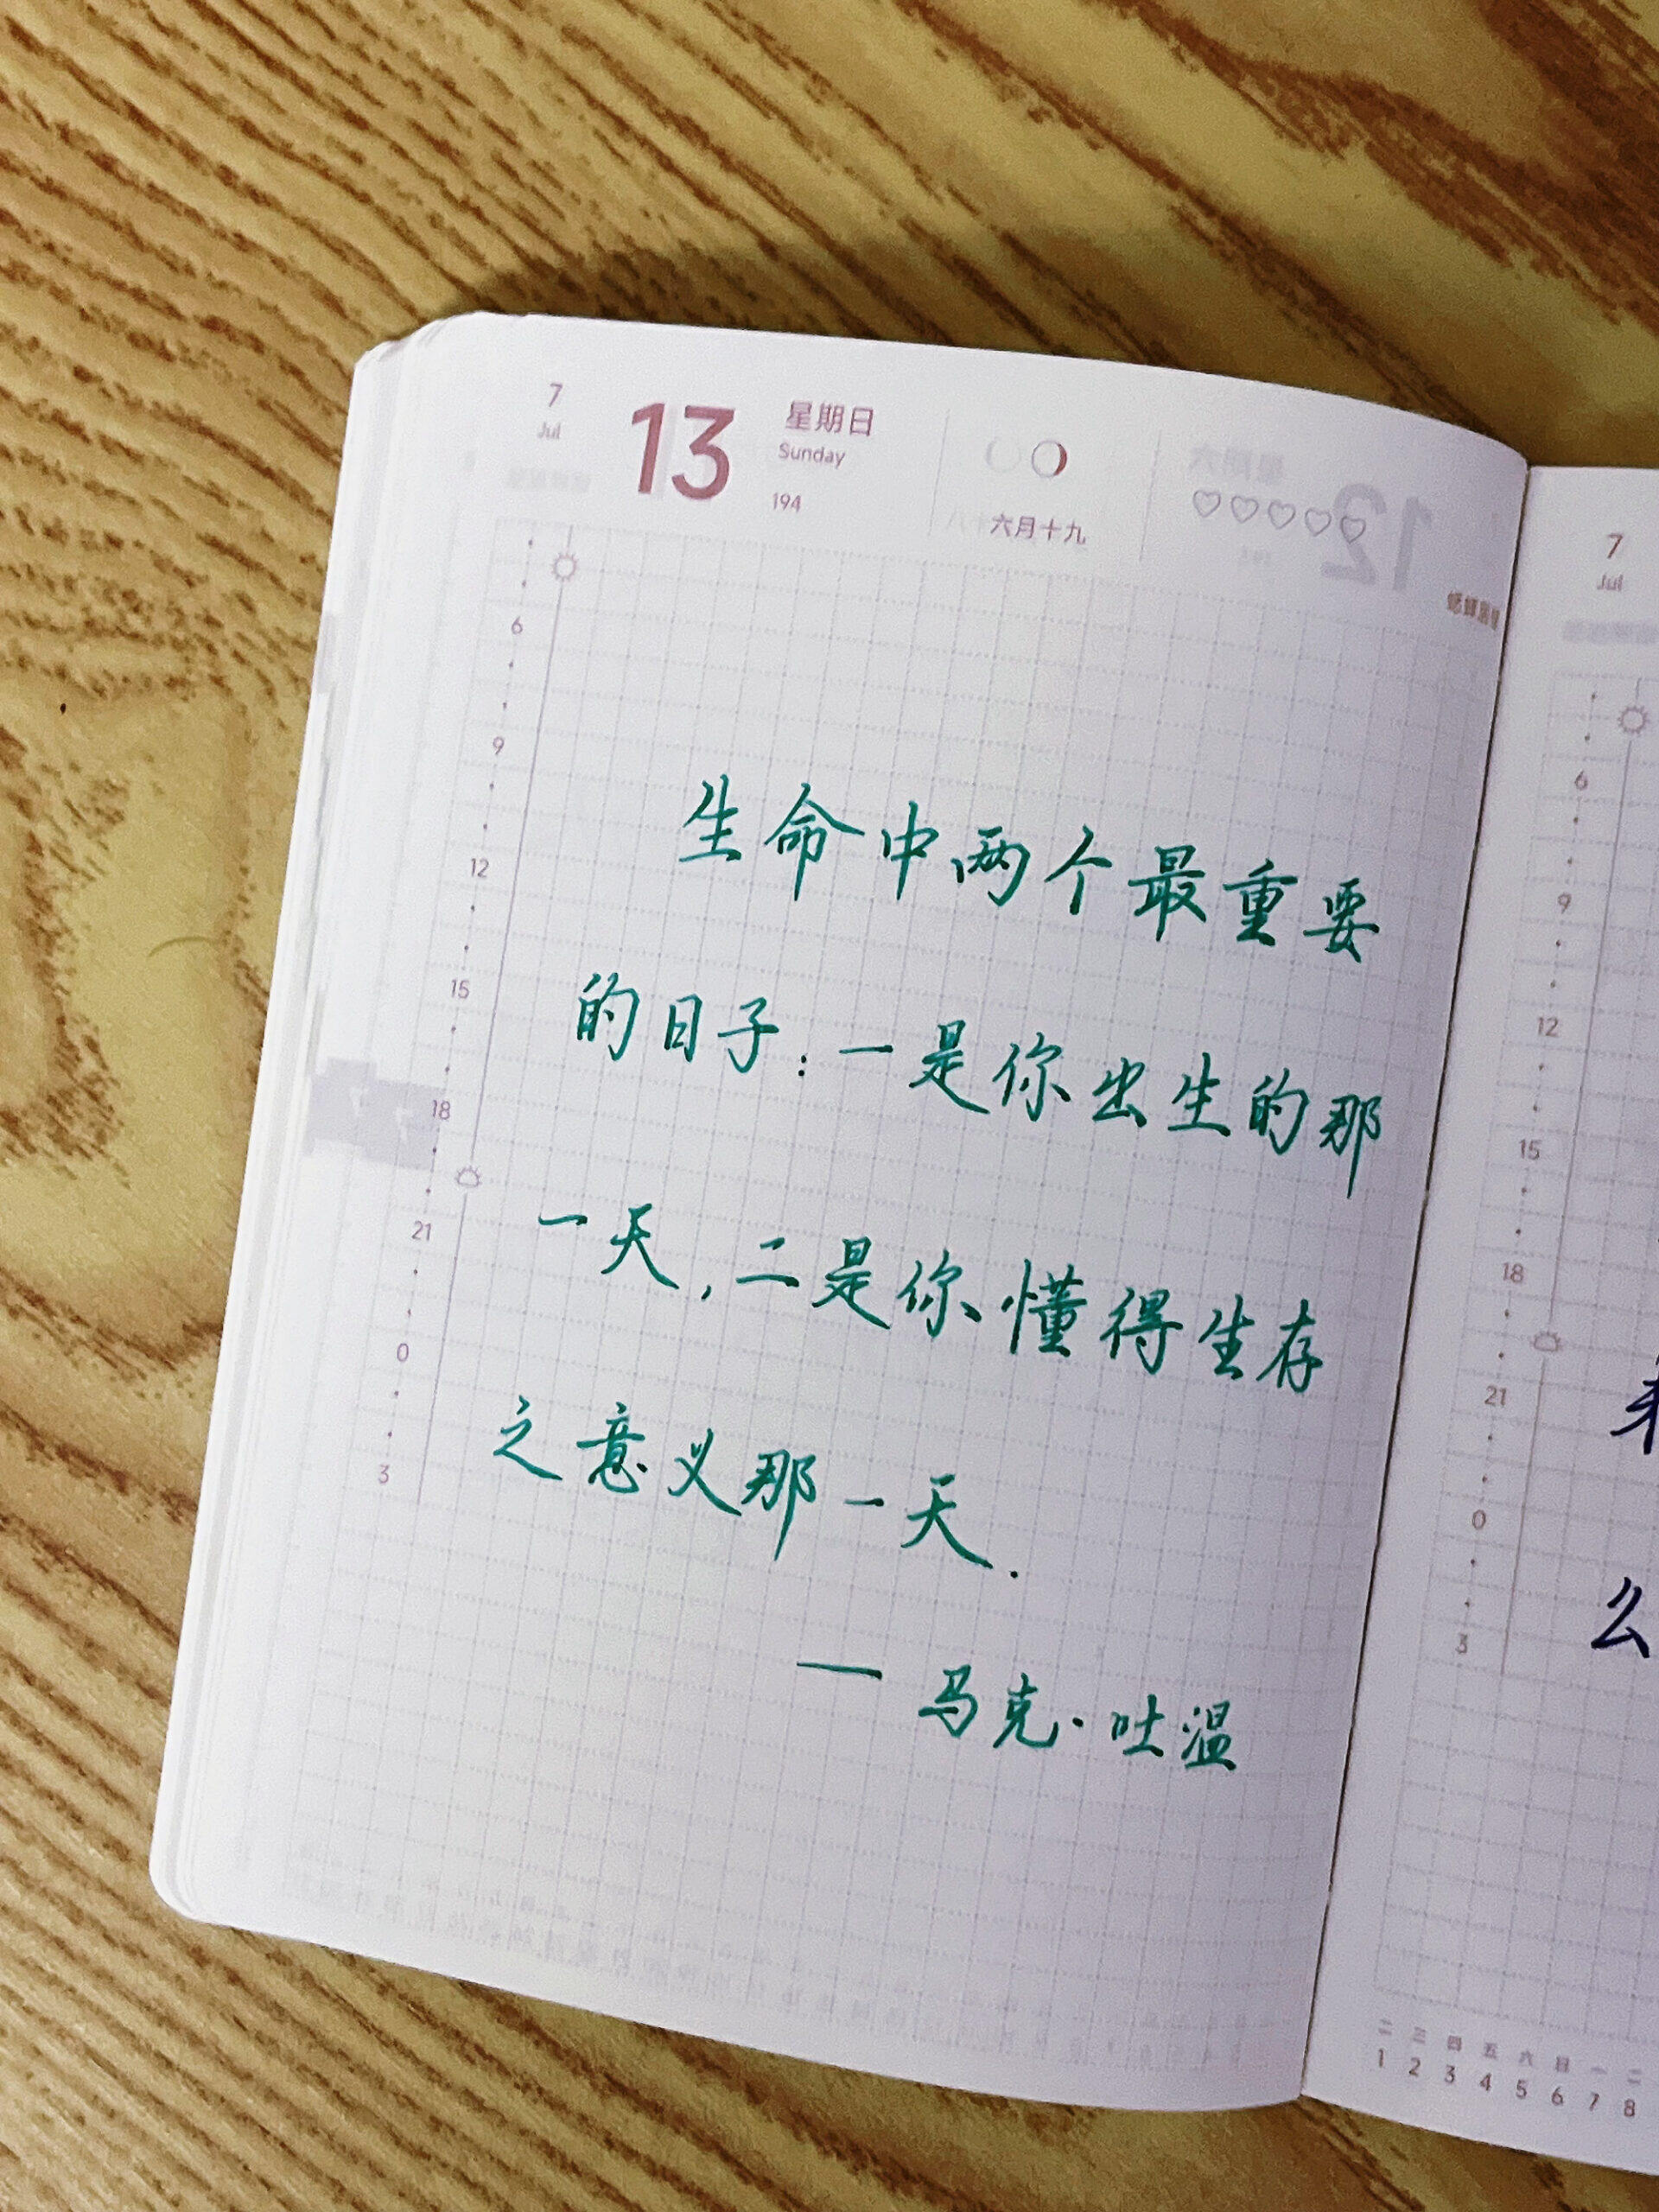 7
Jul
13
星期日
Sunday
194
六月十九
6
9
12
15
18
21
0
3
生命中两个最重要
的日子：一是你出生的那
一天，二是你懂得生存
之意义那一天.
— 马克·吐温
7
Jul
6
9
12
15
18
21
0
3
么
二 三 四 五 六 日 一 二
1 2 3 4 5 6 7 8